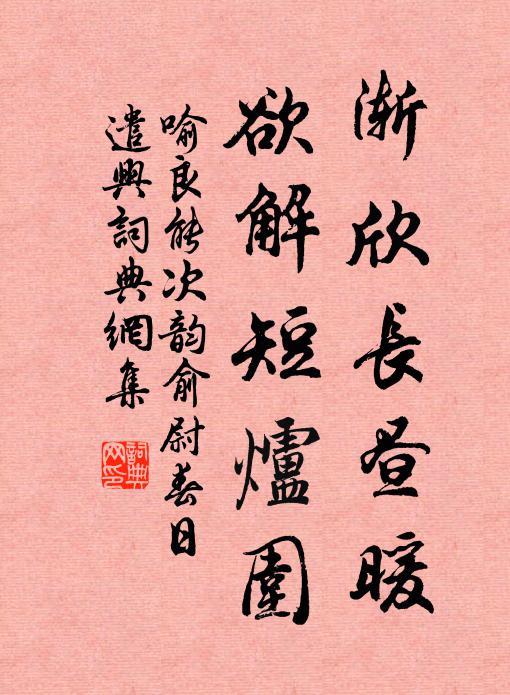 漸欣長昼暖
欲解短爐圍
喻良能次韵俞尉春日
遣興詞典網集
詞典
网印